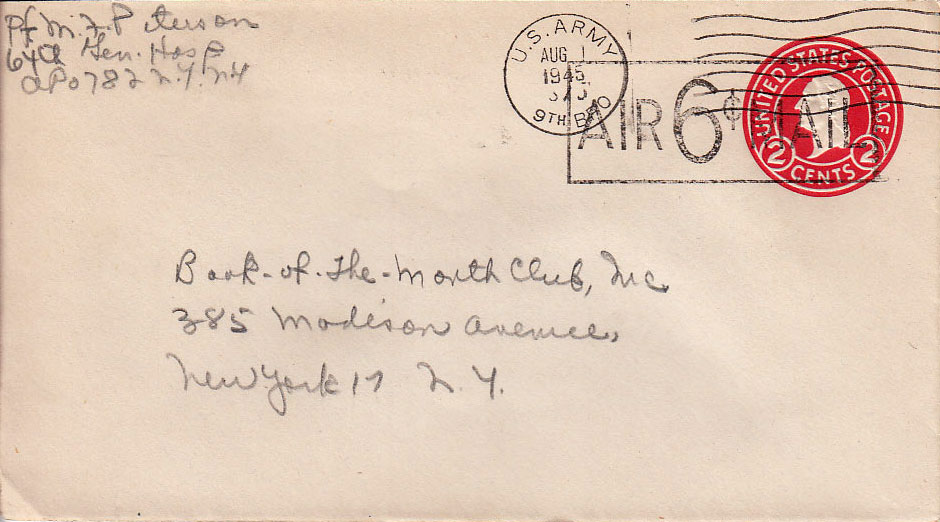 Pf M. F. Peterson
64th Gen. Hosp
APO 782 N.Y. N.Y
U.S. ARMY
AUG 1
1945
9TH BPO
AIR 6¢ MAIL
UNITED STATES POSTAGE
2 CENTS 2
Book-of-the-Month Club, Inc.
385 Madison Avenue,
New York 17 N.Y.